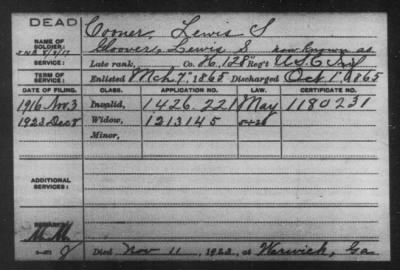 DEAD
Cooner, Lewis S
NAME OF SOLDIER:
Gloover, Lewis S now known as
SERVICE:
Late rank, Co. H, 128" Reg't U.S.C. Inf
TERM OF SERVICE:
Enlisted Mch. 7", 1865 Discharged Oct 1", 1865
DATE OF FILING. CLASS. APPLICATION NO. LAW. CERTIFICATE NO.
1916 Nov. 3 Invalid, 1426.221 May 1180231
1922 Dec 8 Widow, 1213145
Minor,
ADDITIONAL SERVICES:
REMARKS:
M.M.
Died Nov 11, 1922, at Warwick, Ga